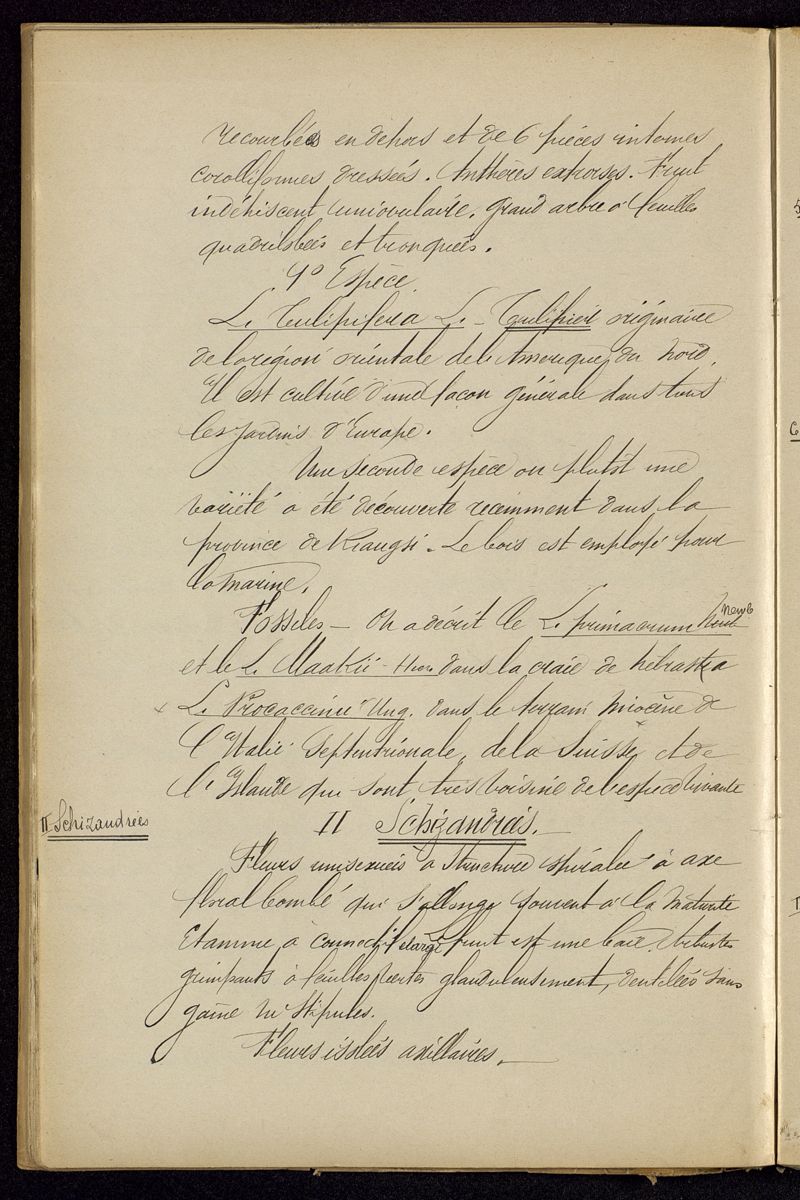 recourbées en dehors et de 6 pièces internes
corolliformes dressées. Anthères extrorses. Fruit
indéhiscent uniovulaire, grand arbre à feuilles
quadrilobées et tronquées.
1º Espèce
L. Tulipifera L. - Tulipier originaire
de la région orientale de l'Amérique du Nord.
Il est cultivé d'une façon générale dans tous
les jardins d'Europe.
Une seconde espèce ou plutôt une
variété a été découverte récemment dans la
province de Kiangsi. Le bois est employé pour
la marine.
Fossiles - On a décrit le L. primaevum Newb
et le L. Meekii - Heer dans la craie de Nebraska
L. Procaccinii Ung. dans le terrain Miocène de
l'Italie Septentrionale, de la Suisse et de
l'Islande qui sont très voisine de l'espèce vivante
II Schizandrées
II Schizandrées.
Fleurs unisexuées à structure spiralée à axe
floral bombé qui s'allonge souvent à la maturité
Etamine à connectif élargi fruit est une baie. Arbustes
grimpants à feuilles glanduleusement, dentelées sans
gaîne ni stipules.
Fleurs isolées axillaires.